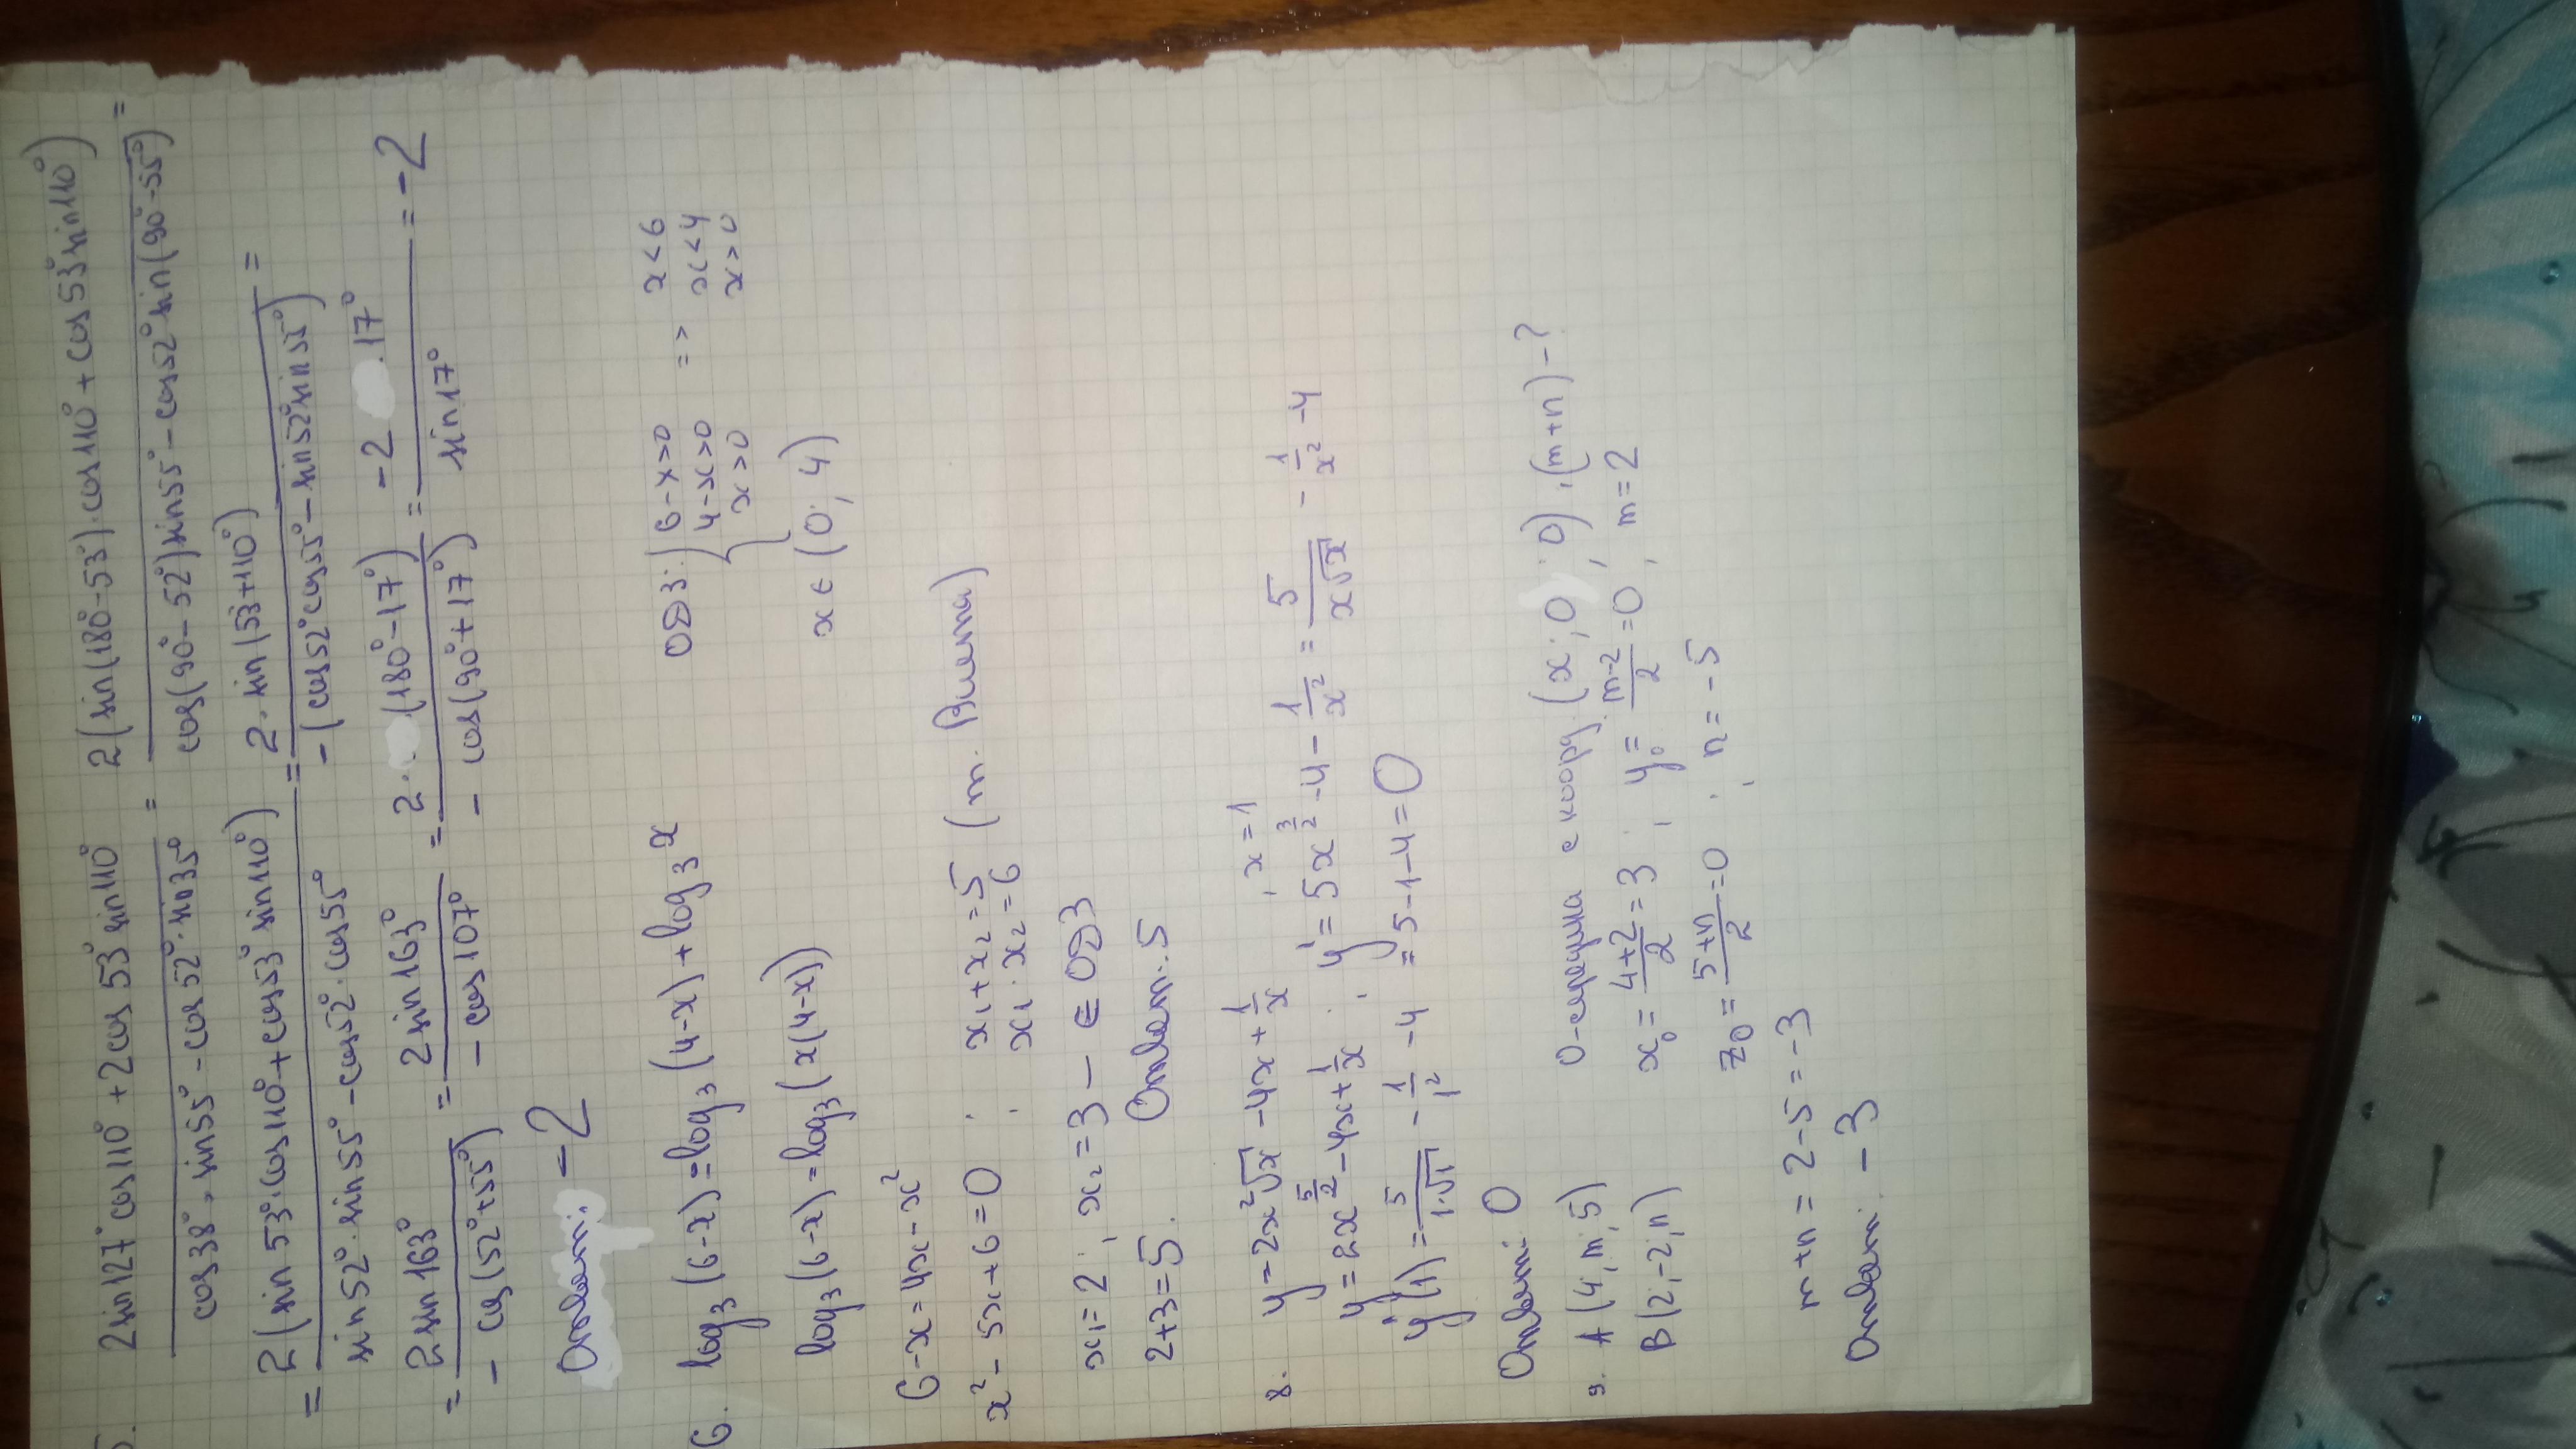 5. (2sin127°cos110° + 2cos53°sin110°)/(cos38°·sin55° - cos52°·sin35°) = (2(sin(180°-53°)·cos110° + cos53°sin110°))/(cos(90°-52°)sin55° - cos52°sin(90°-55°)) =
= (2(sin53°·cos110° + cos53°sin110°))/(sin52°·sin55° - cos52°·cos55°) = (2·sin(53°+110°))/(-(cos52°cos55° - sin52°sin55°)) =
= (2sin163°)/(-cos(52°+55°)) = (2sin163°)/(-cos107°) = (2·(180°-17°))/(-cos(90°+17°)) = (-2 17°)/(sin17°) = -2
Ответ: -2
6. log₃(6-x) = log₃(4-x) + log₃x ОДЗ: { 6-x>0 => x<6
4-x>0 x<4
x>0 x>0
log₃(6-x) = log₃(x(4-x)) x∈(0; 4)
6-x = 4x-x²
x²-5x+6=0 ; x₁+x₂=5 (т. Виета)
x₁·x₂=6
x₁=2; x₂=3 - ∈ ОДЗ
2+3=5. Ответ: 5
8. y=2x²√x - 4x + 1/x, x=1
y=2x^(5/2) - 4x + 1/x ; y' = 5x^(3/2) - 4 - 1/x² = 5/(x√x) - 1/x² - 4
y'(1) = 5/(1·√1) - 1/1² - 4 = 5-1-4=0
Ответ: 0
9. A(4; m; 5) O-середина с коорд. (x; 0; 0), (m+n)-?
B(2; -2; n) x₀ = (4+2)/2 = 3 ; y₀ = (m-2)/2 = 0, m=2
z₀ = (5+n)/2 = 0 ; n=-5
m+n = 2-5 = -3
Ответ: -3